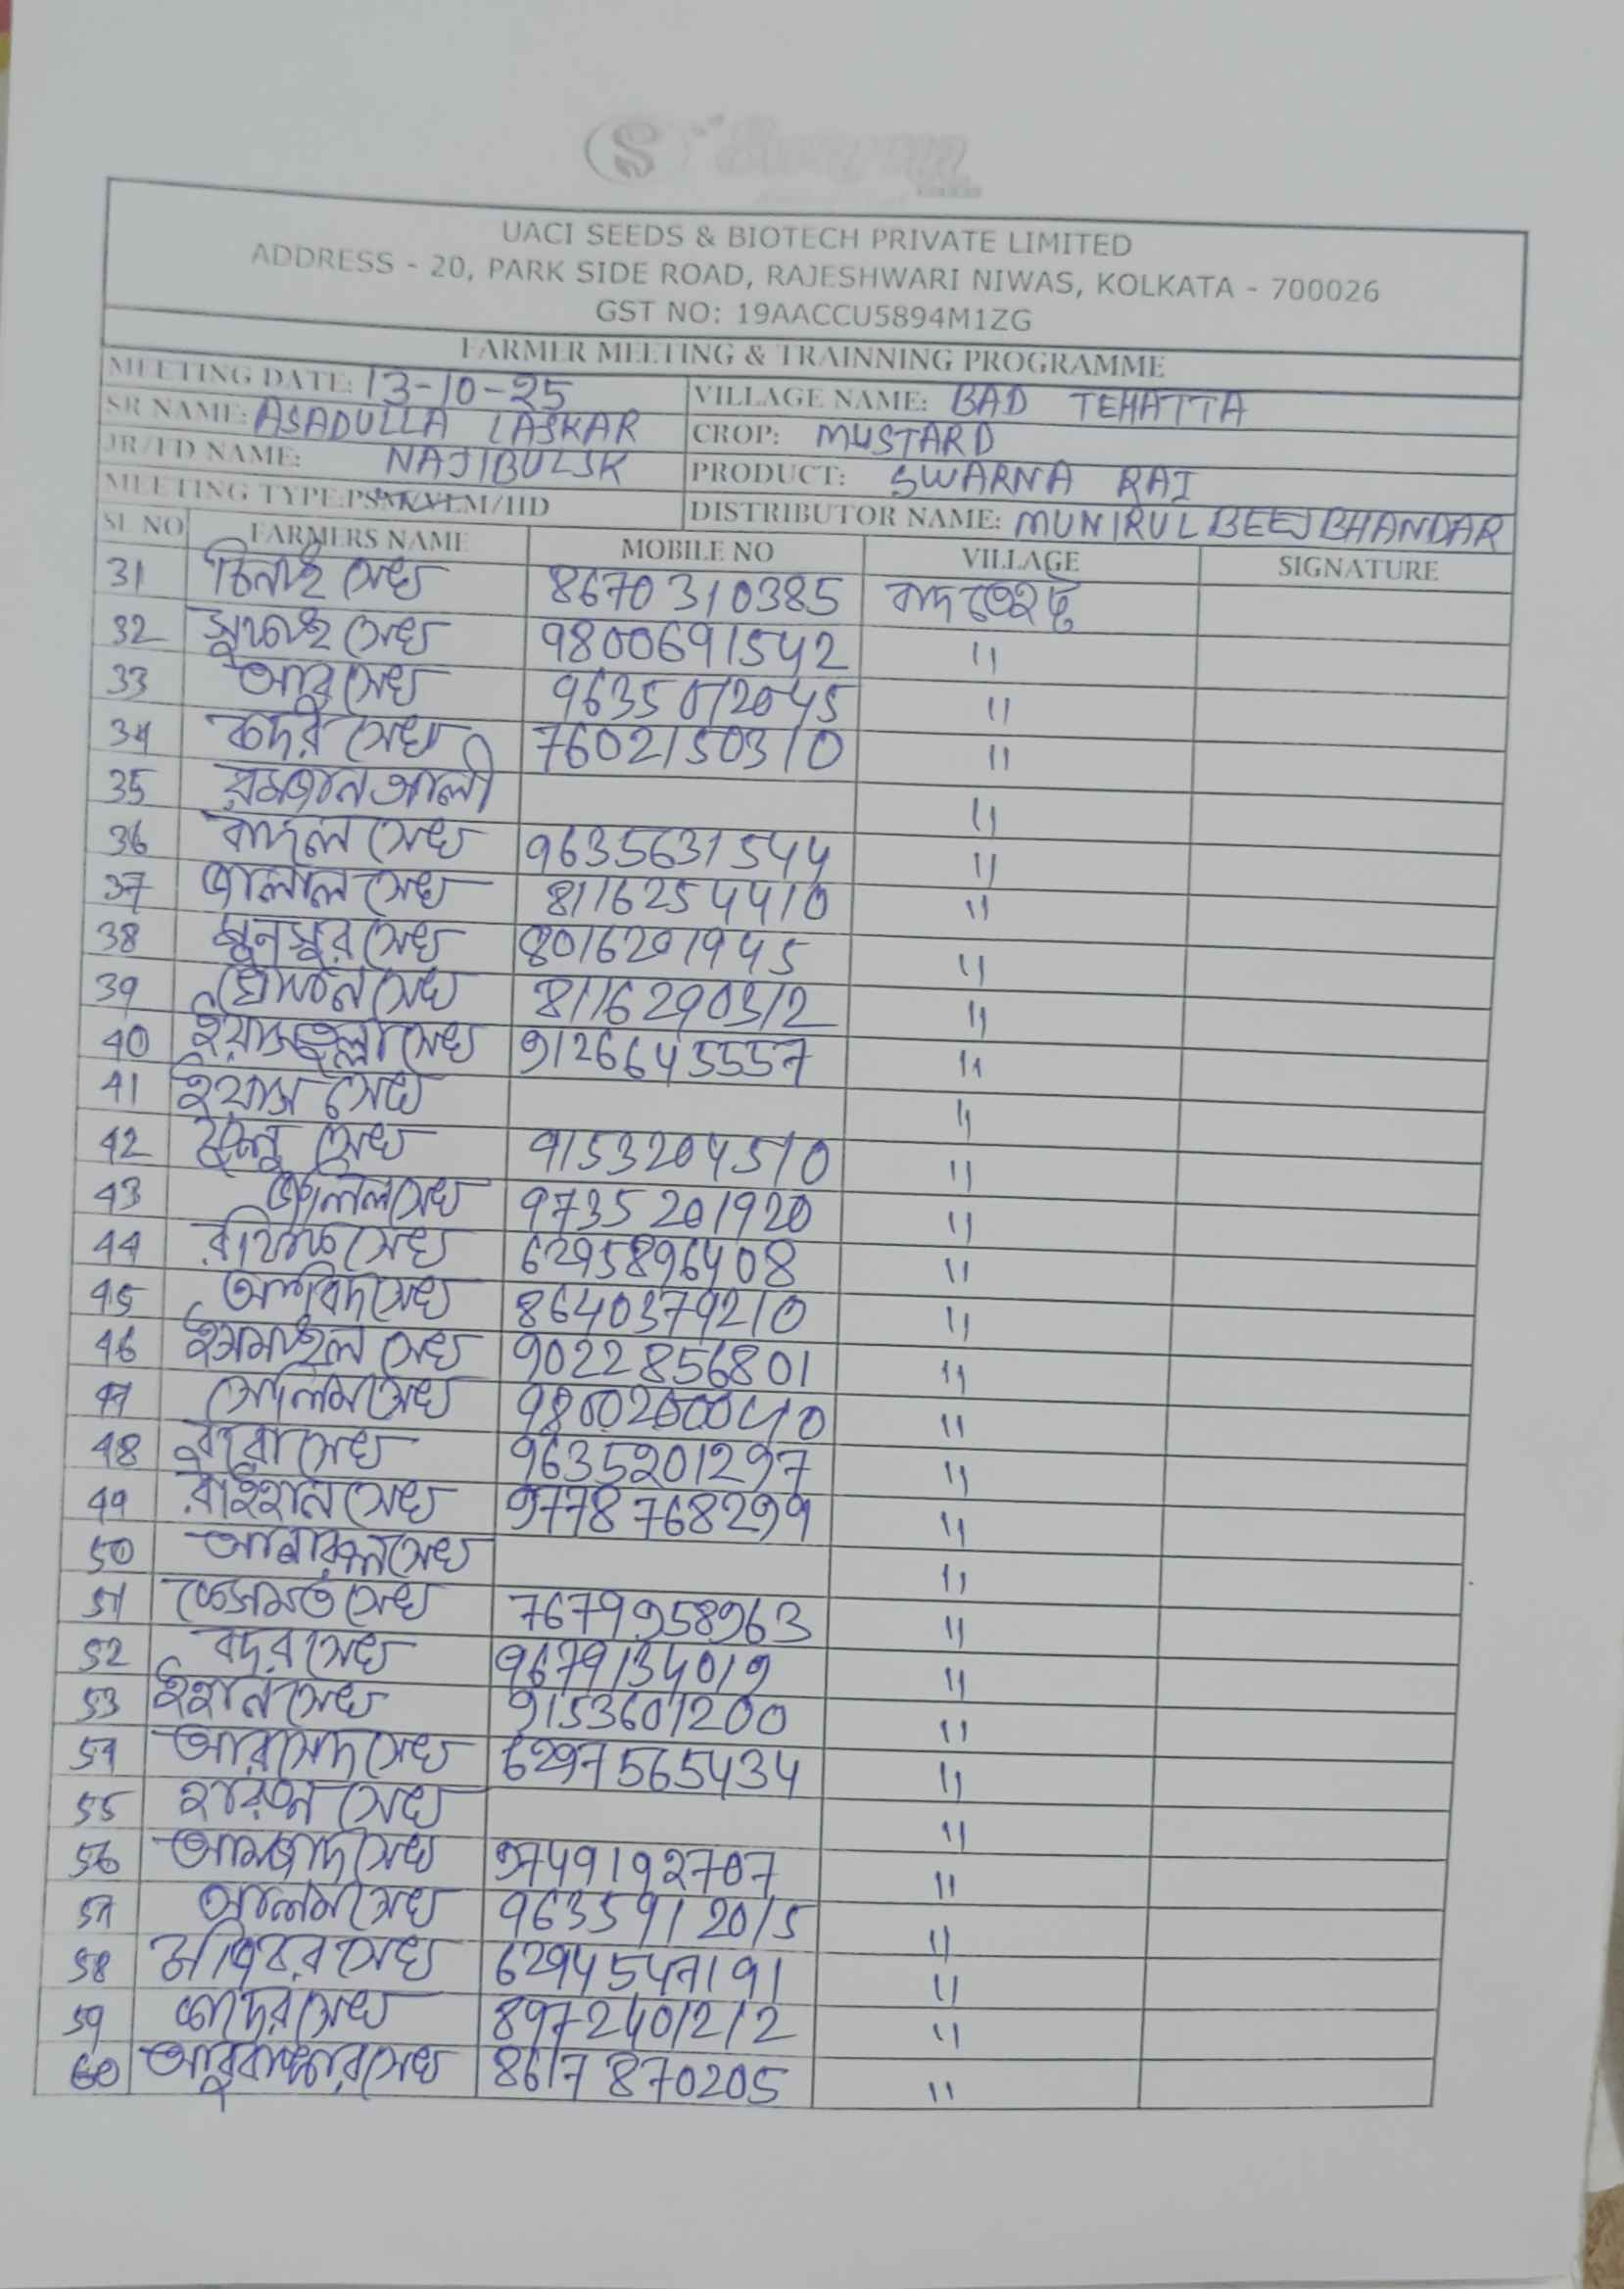 UACI SEEDS & BIOTECH PRIVATE LIMITED
ADDRESS - 20, PARK SIDE ROAD, RAJESHWARI NIWAS, KOLKATA - 700026
GST NO: 19AACCU5894M1ZG
FARMER MEETING & TRAINNING PROGRAMME
MEETING DATE: 13-10-25 VILLAGE NAME: BAD TEHATTA
SR NAME: ASADULLA LASKAR CROP: MUSTARD
JR/FD NAME: NAJIBUL SK PRODUCT: SWARNA RAI
MEETING TYPE: DISTRIBUTOR NAME: MUNIRUL BEEJ BHANDAR
SL NO FARMERS NAME MOBILE NO VILLAGE SIGNATURE
31 সেখ 8670310385 বাদ
32 সেখ 9800691542 "
33 আবু সেখ 9635072045 "
34 কাদর সেখ 7602150310 "
35 রমজান আলী "
36 বাদল সেখ 9635631544 "
37 জালাল সেখ 8116254410 "
38 মুনসুর সেখ 8016201945 "
39 সেখ 8116290312 "
40 সেখ 9126645557 "
41 ইয়াজ সেখ "
42 সেখ 9153204510 "
43 জলিল সেখ 9735201920 "
44 সেখ 6295896408 "
45 সেখ 8640379210 "
46 ইসমাইল সেখ 9022856801 "
47 সেলিম সেখ 9800200040 "
48 সেখ 9635201297 "
49 সেখ 9778768299 "
50 সেখ "
51 সেখ 7679958963 "
52 বদর সেখ 9679134019 "
53 সেখ 9153601200 "
54 আরসেদ সেখ 6297565434 "
55 হারুন সেখ "
56 আমজাদ সেখ 9749192707 "
57 আলম সেখ 9635912015 "
58 সেখ 6294547191 "
59 কাদের সেখ 8972401212 "
60 সেখ 8617870205 "